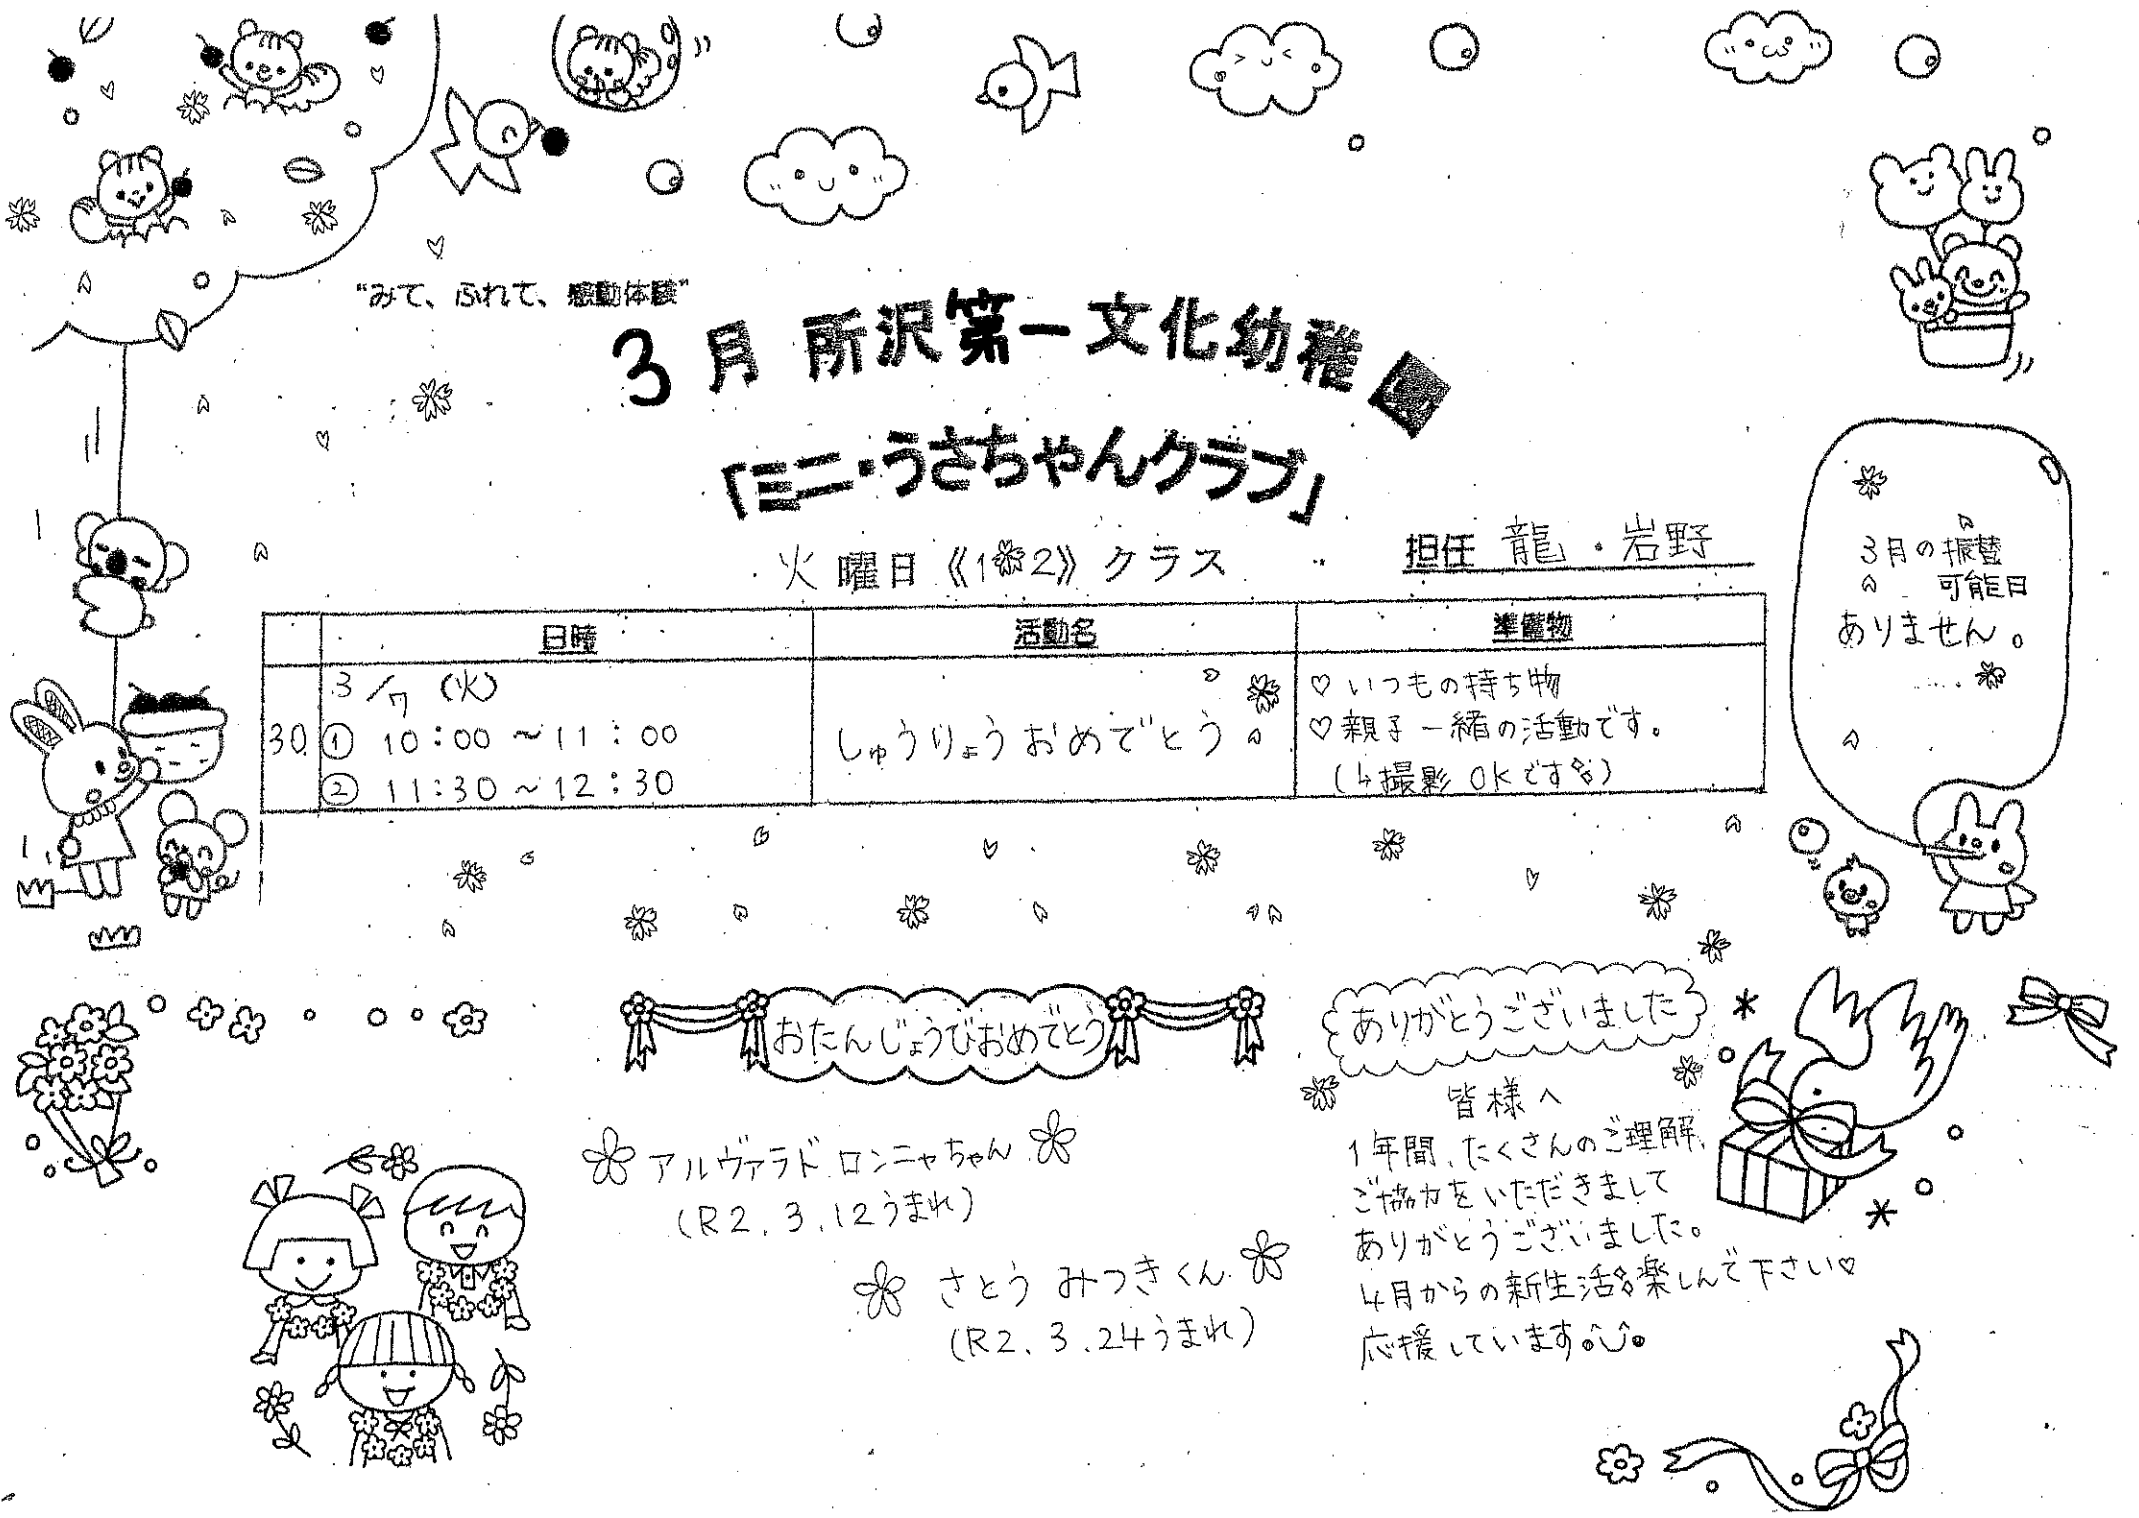 "みて、ふれて、感動体験"
3月 所沢第一文化幼稚園
「ミニ・うさちゃんクラブ」
火曜日《1❀2》クラス
担任 龍・岩野
3月の振替
可能日
ありません。
日時 活動名 準備物
30. 3/7 (火)
① 10:00～11:00
② 11:30～12:30
しゅうりょうおめでとう
♡いつもの持ち物
♡親子一緒の活動です。
(↳撮影OKです)
おたんじょうびおめでとう
アルヴァラド ロンニャちゃん
(R2.3.12うまれ)
さとう みつきくん
(R2.3.24うまれ)
ありがとうございました
皆様へ
1年間、たくさんのご理解、
ご協力をいただきまして
ありがとうございました。
4月からの新生活楽しんで下さい♡
応援しています。